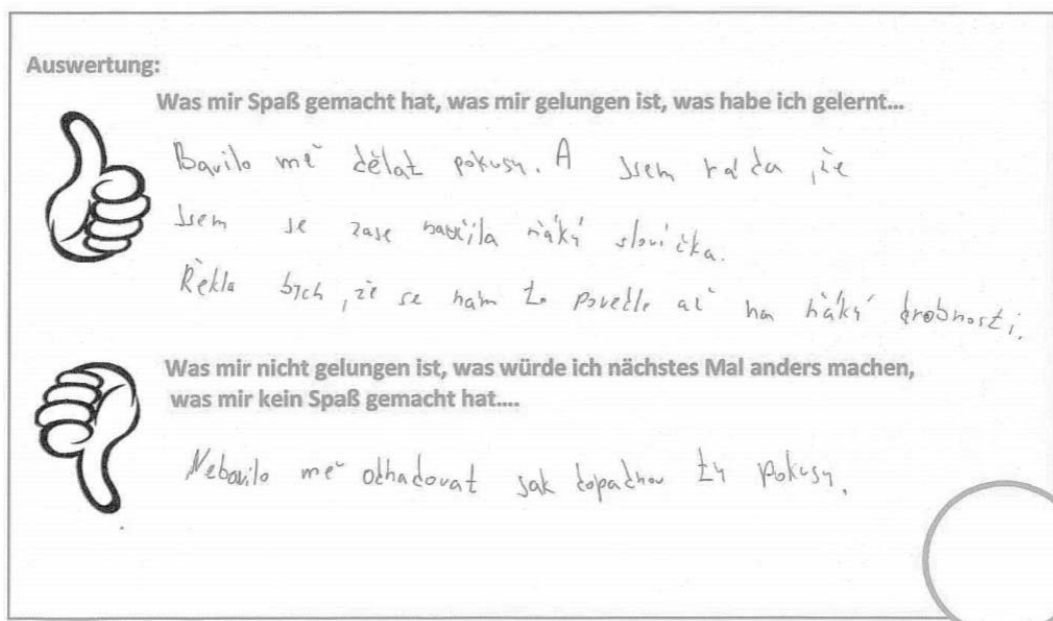 Auswertung:
Was mir Spaß gemacht hat, was mir gelungen ist, was habe ich gelernt...
Bavilo mě dělat pokusy. A jsem ráda, že
jsem se zase naučila ňáký slovíčka.
Řekla bych, že se nám to povedlo až na ňáký drobnosti.
Was mir nicht gelungen ist, was würde ich nächstes Mal anders machen,
was mir kein Spaß gemacht hat....
Nebavilo mě odhadovat jak dopadnou ty pokusy.